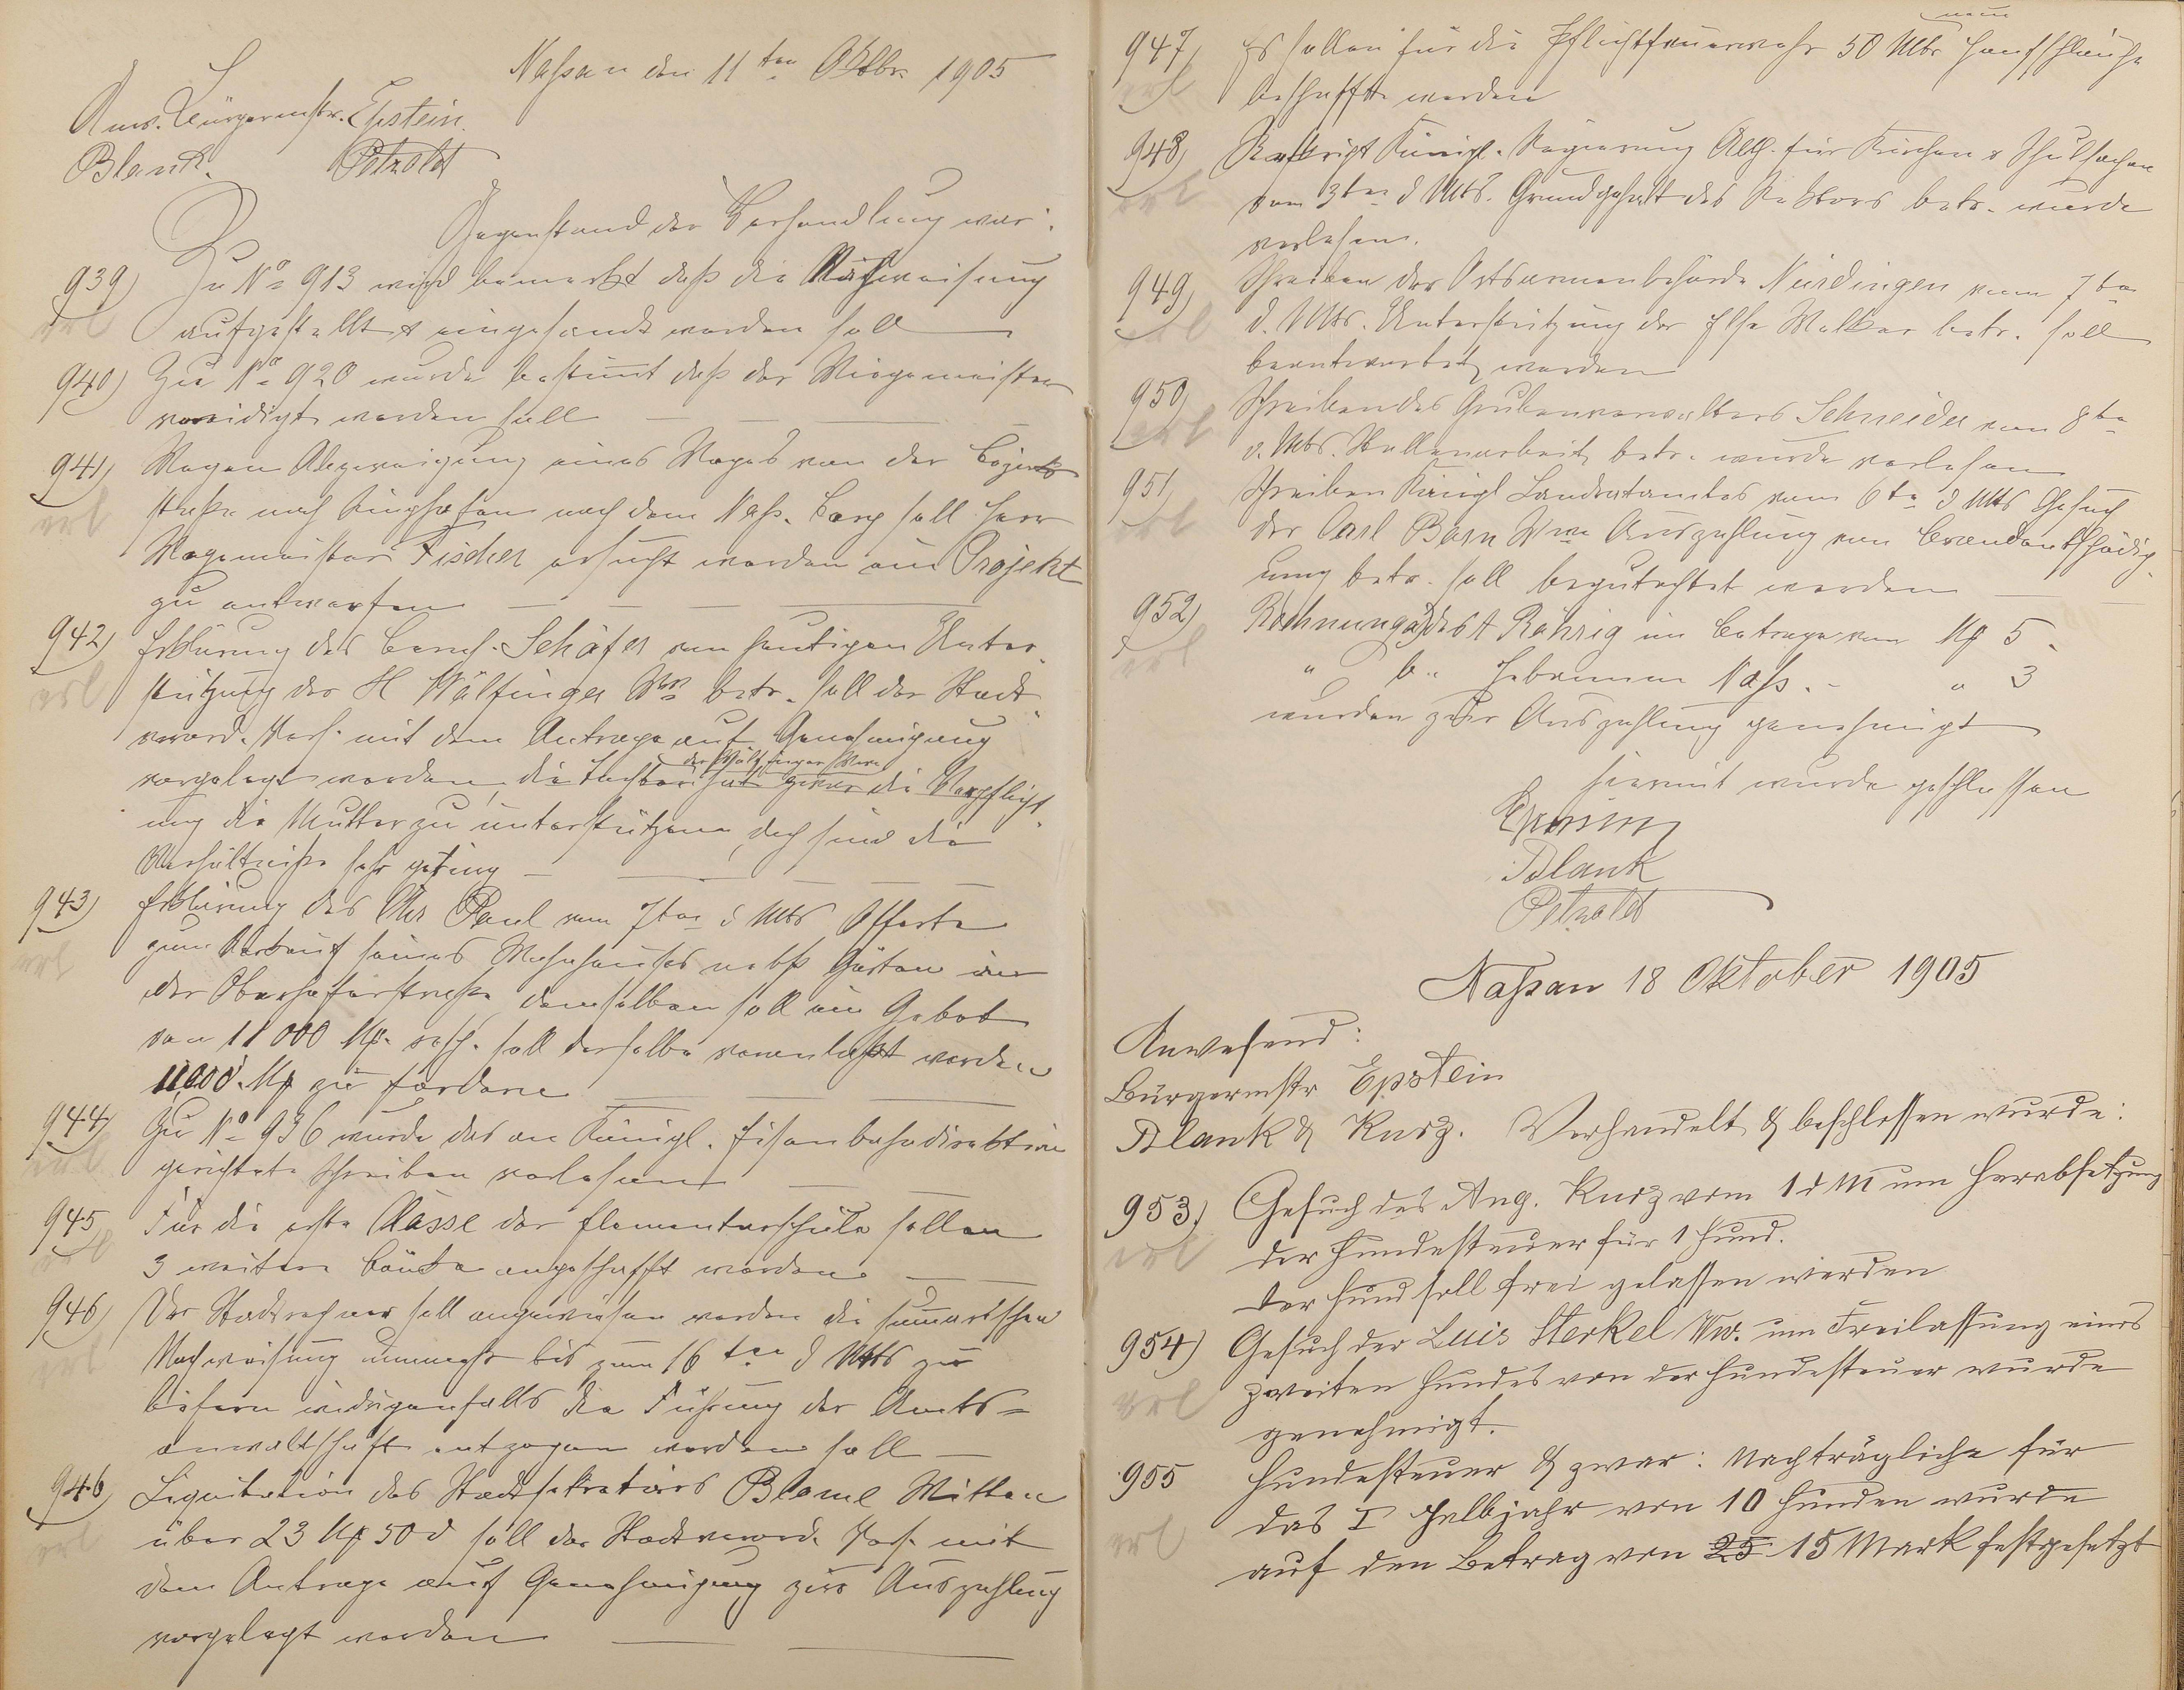 Nassau den 11ten Oktbr. 1905
Anw. Bürgermstr. Epstein.
Blank. Petzoldt
Gegenstand der Verhandlung war:
939) Zu No 913 wird bemerkt daß die Nachweisung
erl aufgestellt & eingesandt werden soll
940) Zu No 920 wurde bestimmt daß der Wiegemeister
vereidigt werden soll
941) Wegen Abzweigung eines Weges von der
erl straße nach nach dem Nass. Berg soll Herr
Wegemeister Fischer ersucht werden ein Projekt
zu entwerfen
942) Erklärung des Schäfer vom heutigen Unter-
erl stützung der H Wölfinger Wwe betr. soll der Stadt-
verord. Vers. mit dem Antrage auf Genehmigung
vorgelegt werden, die Tochter der Wölfinger Wwe hat zwar die Verpflicht-
ung die Mutter zu unterstützen, doch sind die
Verhältniße sehr gering
943) Erklärung des Chr Paul vom 7ten d Mts Offerte
erl zum Verkauf seines Wohnhauses nebst Garten in
der Oberhoferstraße, demselben soll ein Gebot
von 11000 Mk. resp. soll derselbe veranlaßt werden
11,000 Mk zu fordern
944) Zu No 936 wurde das an Königl. Eisenbahndirektion
erl gerichtete Schreiben verlesen
945 Für die erste Classe der Elementarschule sollen
erl 3 weitere Bänke angeschafft werden
946) Der Stadtrechner soll angewiesen werden die summarischen
erl Nachweisung nunmehr bis zum 16ten d Mts zu
liefern widrigenfalls die Führung der Amts-
anwaltschaft entzogen werden soll
946) Liquidation des Stadtsekretärs Blome Witten
erl über 23 Mk 50 d soll der Stadtverord. Vers. mit
dem Antrage auf Genehmigung zur Auszahlung
vorgelegt werden
947) Es sollen für die Pflichtfeuerwehr 50 Mtr neue Hanfschläuche
erl beschafft werden
948) Reskript Königl. Regierung Abth. für Kirchen & Schulsachen
erl vom 3ten d Mts. Grundgehalt des Rektors betr. wurde
verlesen.
949) Schreiben der Ortsarmenbehörde vom 7ten
erl d. Mts. Unterstützung der Else betr. soll
beantwortet werden
950) Schreiben des Grubenverwalters Schneider vom 8ten
erl d. Mts. Stollenarbeit betr. wurde verlesen
951) Schreiben Königl Landratamtes vom 6ten d Mts Gesuch
erl der Carl Wwe Auszahlung von Brandentschädig-
ung betr. soll begutachtet werden
952) Rechnung a) des A Röhrig im Betrage von Mk 5.
erl " b. Hebamme Nass. - " 3
wurden zur Auszahlung genehmigt
Hiermit wurde geschlossen
Epstein
Blank
Petzoldt
Nassau 18 Oktober 1905
Anwesend:
Bürgermstr Epstein
Blank & Kurz. Verhandelt & beschlossen wurde:
953.) Gesuch des Aug. Kurz vom 1 d M um Herabsetzung
erl der Hundesteuer für 1 Hund.
Der Hund soll frei gelassen werden
954) Gesuch der Luis Sterkel Ww. um Freilassung eines
erl zweiten Hundes von der Hundesteuer wurde
genehmigt.
955 Hundesteuer & zwar: Nachträgliche für
erl das I Halbjahr von 10 Hunden wurde
auf den Betrag von 25 15 Mark festgesetzt